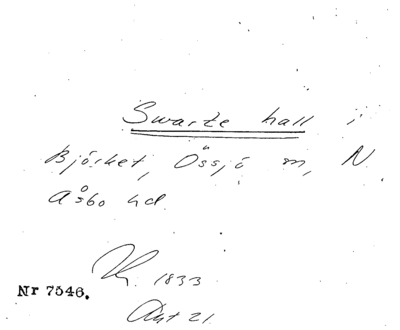 Swarte hall i
Björket, Össjö m, N
Åsbo hd.
1833
Nr 7546.
21.